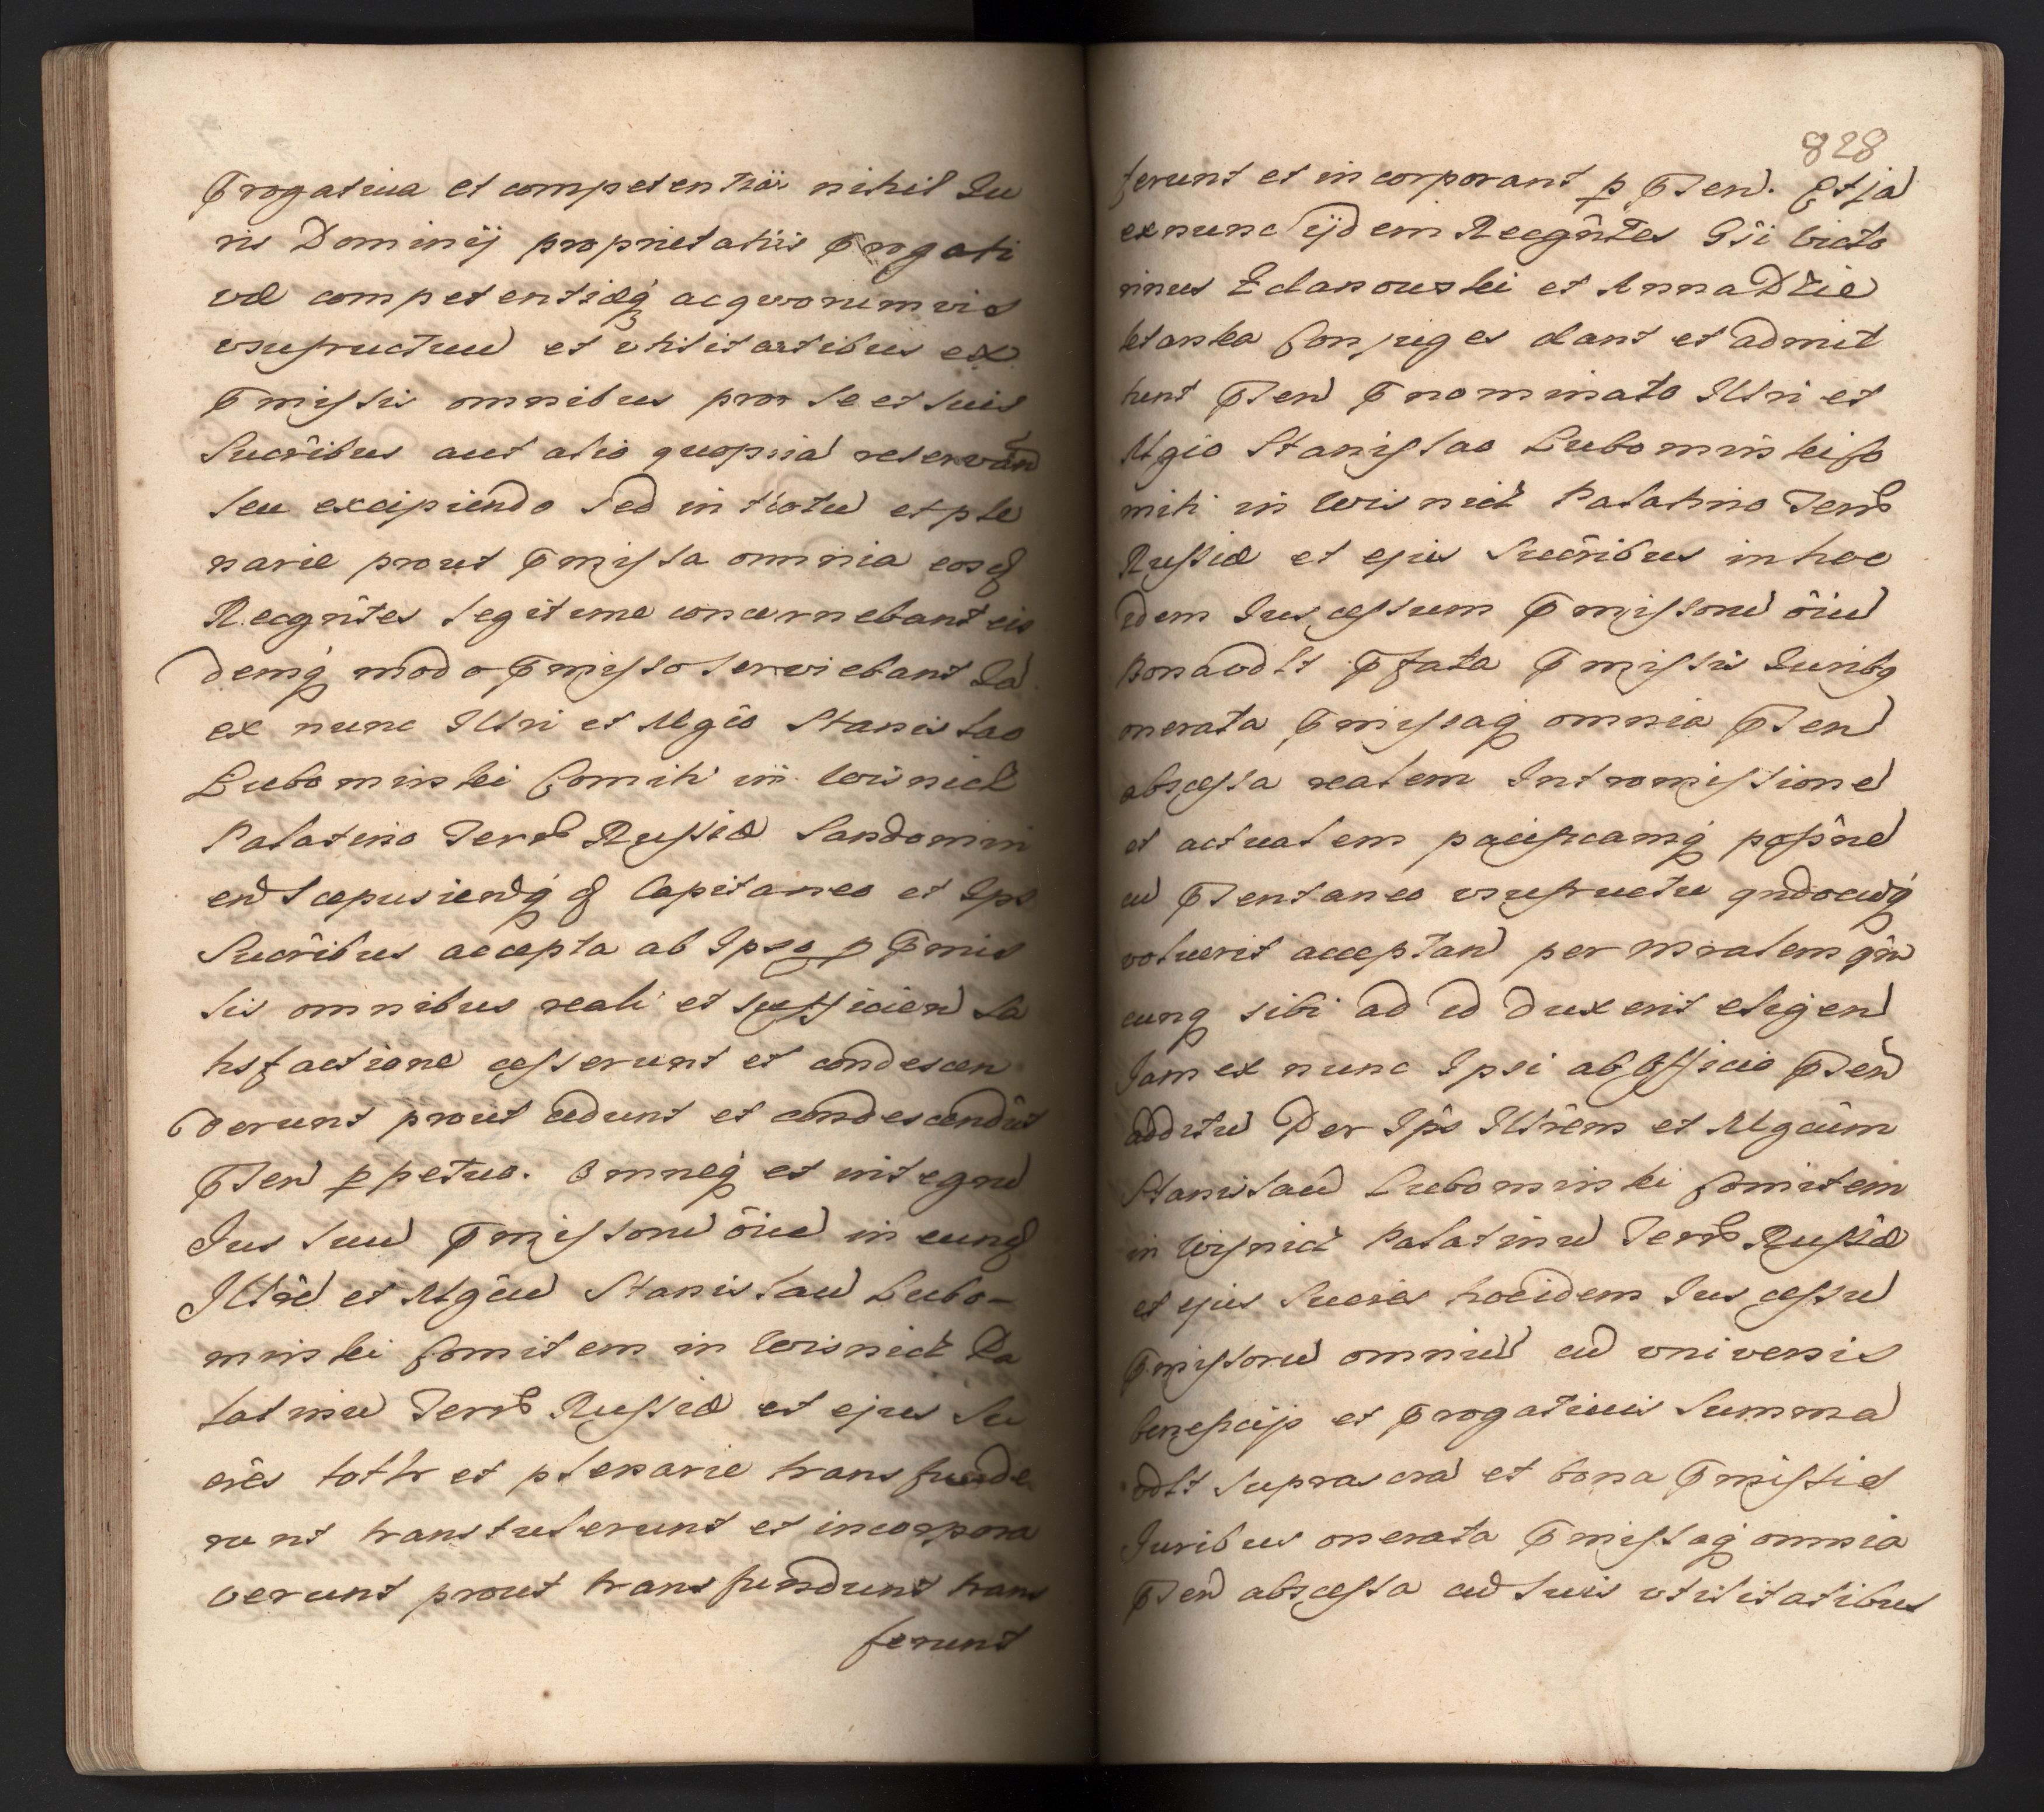 Progativa et competentiæ nihil Iu
ris Dominÿ proprietatis Progati
væ competentiæq̃ acquorumvis
usufructuũ et utilitatibus ex
Pmissis omnibus pro se et suis
Sucr̃ibus aut alio quopiã reservãn
seu excipiendo sed in totũ et ple
narie prout Pmissa omnia eosq̃
Recgn̂tes legitime concernebant eis
demq̃ modo Pmisso serviebant Iã
ex nunc Illri et Mgĉo Stanislao
Lubomirski Comiti in Wisnicz
Palatino Terrȝ Russiæ Sandomiri
en̄ Scepusien̄q̃ q̃ Capitaneo et Ips
Sucr̂ibus accepta ab Ipso p̱ Pmis
sis omnibus reali et sufficien̄ sa
tisfactione cesserunt et condescen
derunt prout cedunt et condescendũt
Pten̄ p̱petuo. Omneq̃ et integrũ
Ius suũ Pmissorũ ôiũ in eunq̃
Illrê et Mgĉũ Stanislaũ Lubo-
mirski Comitem in Wisnicz Pa
latinũ Terrȝ Russiæ et ejus Su
cr̂es totłr et plenarie transfude
runt transtulerunt et incorpora
verunt prout transfundunt trans
ferunt
828
ferunt et incorporant p̱ Pten̄. Et jã
ex nunc ijdem Recgn̂tes Gsi Victo
rinus Zdanowski et Anna Dzie
ktanka Conjuges dant et admit
tunt Pten̄ Pnominato Illri et
Mgĉo Stanislao Lubomirski Co
miti in Wisnicz Palatino Terrȝ
Russiæ et ejus Sucr̂ibus in hoc
idem Ius cessum Pmissorũ ôiũ
Bona odlt Pfata Pmissis Iuribq
onerata Pmissaq̃ omnia Pten̄
abscessa realem Intromissionẽ
et actualem pacificamq̃ possn̂ẽ
cũ Ptentaneo usufructu qndocũq̃
voluerit acceptan̄ per Mralem qñ
cunq̃ sibi ad id duxerit eligen̄
Iam ex nunc Ipsi ab Officio Pten̄
additũ Per Ips̃ Illrêm et Mgĉũm
Stanislaũ Lubomirski Comitem
in Wisnicz Palatinũ Terrȝ Russiæ
et ejus Sucr̂es hoc idem Ius cessũ
Pmissorũ omniũ cũ universis
beneficijs et Progativis Summã
odlt suprascrã et bona Pmissis
Iuribus onerata Pmissaq̃ omnia
Pten̄ abscessa cũ suis utilitatibus